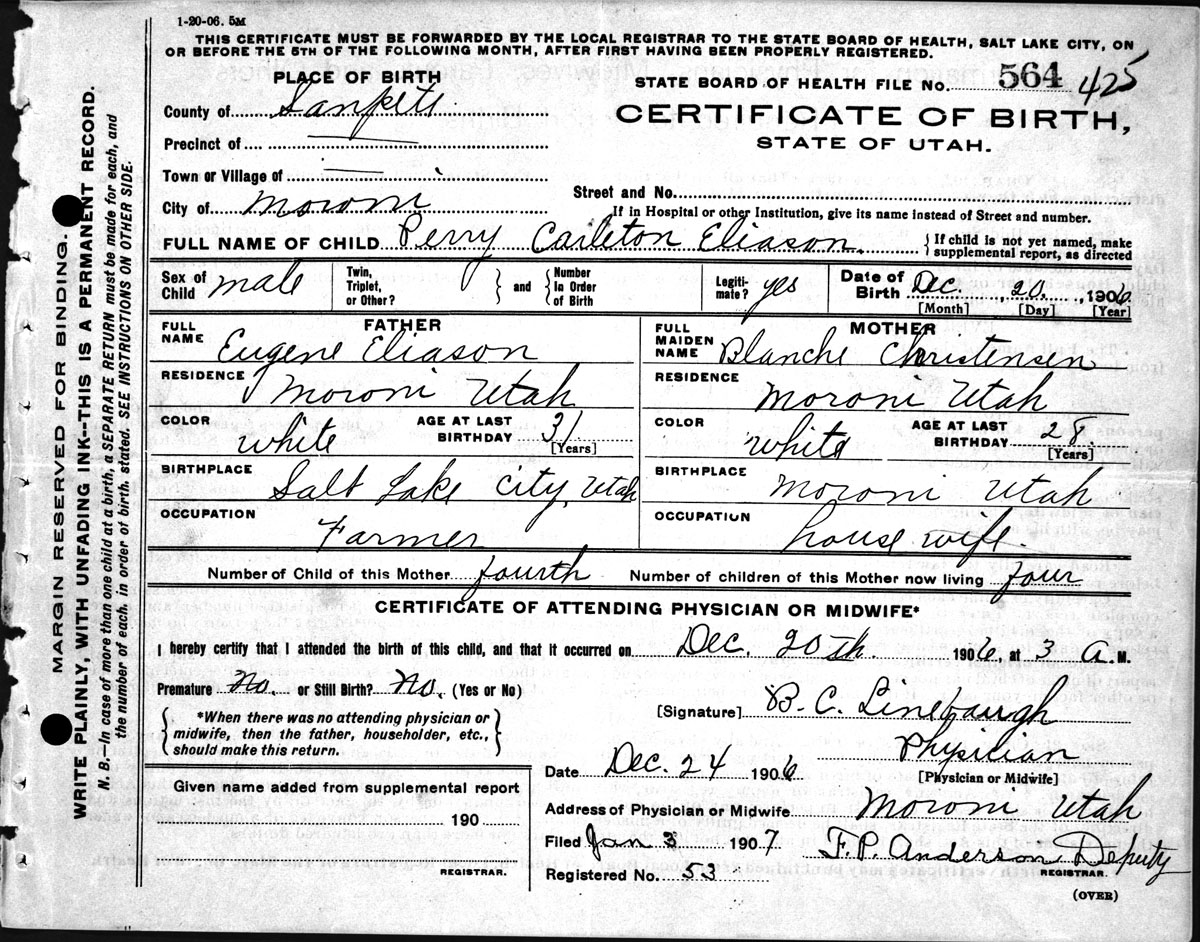 1-20-06. 5M
THIS CERTIFICATE MUST BE FORWARDED BY THE LOCAL REGISTRAR TO THE STATE BOARD OF HEALTH, SALT LAKE CITY, ON
OR BEFORE THE 5TH OF THE FOLLOWING MONTH, AFTER FIRST HAVING BEEN PROPERLY REGISTERED.
PLACE OF BIRTH
STATE BOARD OF HEALTH FILE No. 564 425
County of Sanpete
CERTIFICATE OF BIRTH,
STATE OF UTAH.
Precinct of
Town or Village of
Street and No.
City of Moroni
If in Hospital or other Institution, give its name instead of Street and number.
FULL NAME OF CHILD Perry Carleton Eliason. {If child is not yet named, make supplemental report, as directed
Sex of Child male Twin, Triplet, or Other? } and { Number In Order of Birth Legiti-mate? yes Date of Birth Dec. 20. , 1906
[Month] [Day] [Year]
FATHER
FULL NAME Eugene Eliason
RESIDENCE Moroni Utah
COLOR white AGE AT LAST BIRTHDAY 31 [Years]
BIRTHPLACE Salt Lake City, Utah
OCCUPATION Farmer
MOTHER
FULL MAIDEN NAME Blanche Christensen
RESIDENCE Moroni Utah
COLOR White AGE AT LAST BIRTHDAY 28. [Years]
BIRTHPLACE Moroni Utah
OCCUPATION house wife.
Number of Child of this Mother fourth Number of children of this Mother now living four
CERTIFICATE OF ATTENDING PHYSICIAN OR MIDWIFE*
I hereby certify that I attended the birth of this child, and that it occurred on Dec. 20th. 1906, at 3 A.M.
Premature No. or Still Birth? No. (Yes or No)
*When there was no attending physician or
midwife, then the father, householder, etc.,
should make this return.
[Signature] B. C. Linebaugh
Physician
[Physician or Midwife]
Date Dec. 24 1906
Address of Physician or Midwife Moroni Utah
Filed Jan 3 1907 F. P. Anderson, Deputy
REGISTRAR.
Registered No. 53
(OVER)
Given name added from supplemental report
190
REGISTRAR.
MARGIN RESERVED FOR BINDING.
WRITE PLAINLY, WITH UNFADING INK--THIS IS A PERMANENT RECORD.
N. B.—In case of more than one child at a birth, a SEPARATE RETURN must be made for each, and
the number of each, in order of birth, stated. SEE INSTRUCTIONS ON OTHER SIDE.